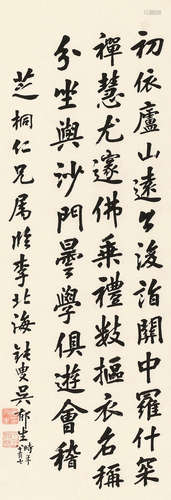 初依廬山遠公後詣關中羅什築
禪慧尤邃佛乘禮數摳衣名稱
分坐與沙門曇學俱遊會稽
芝桐仁兄屬臨李北海鈍叟吳郁生時年